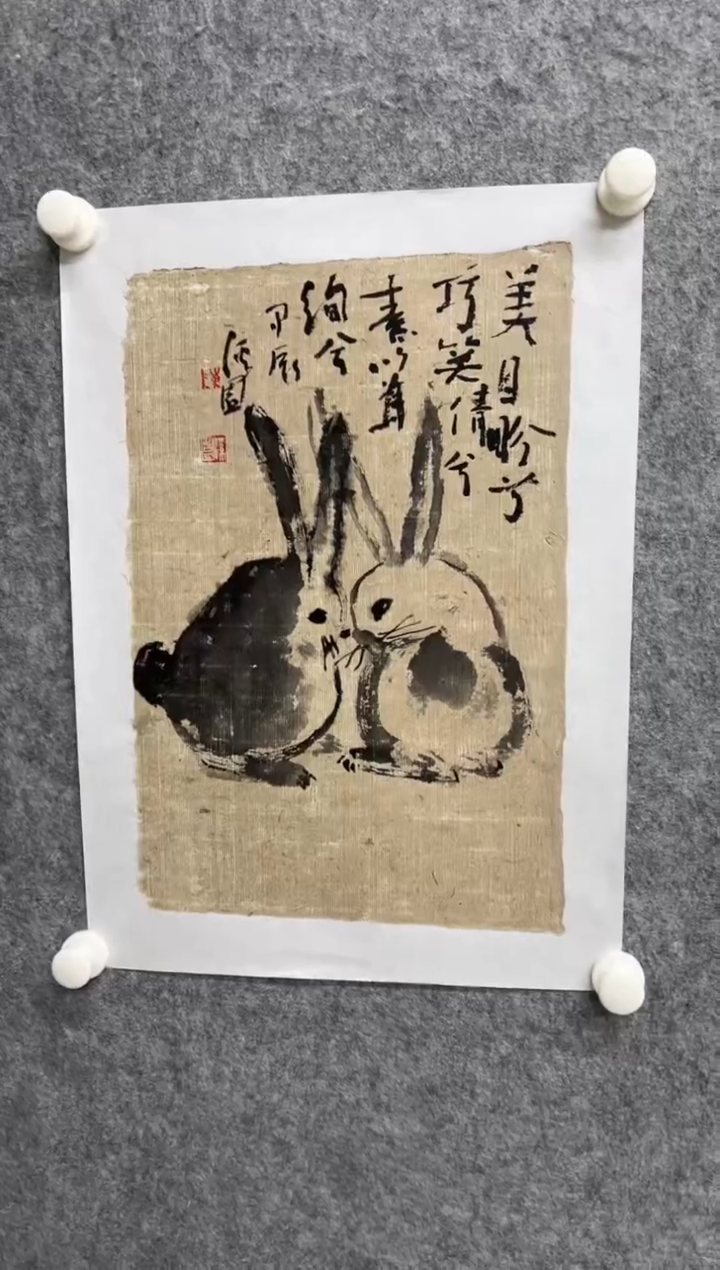 美目盼兮
巧笑倩兮
素以為
絢兮
甲辰